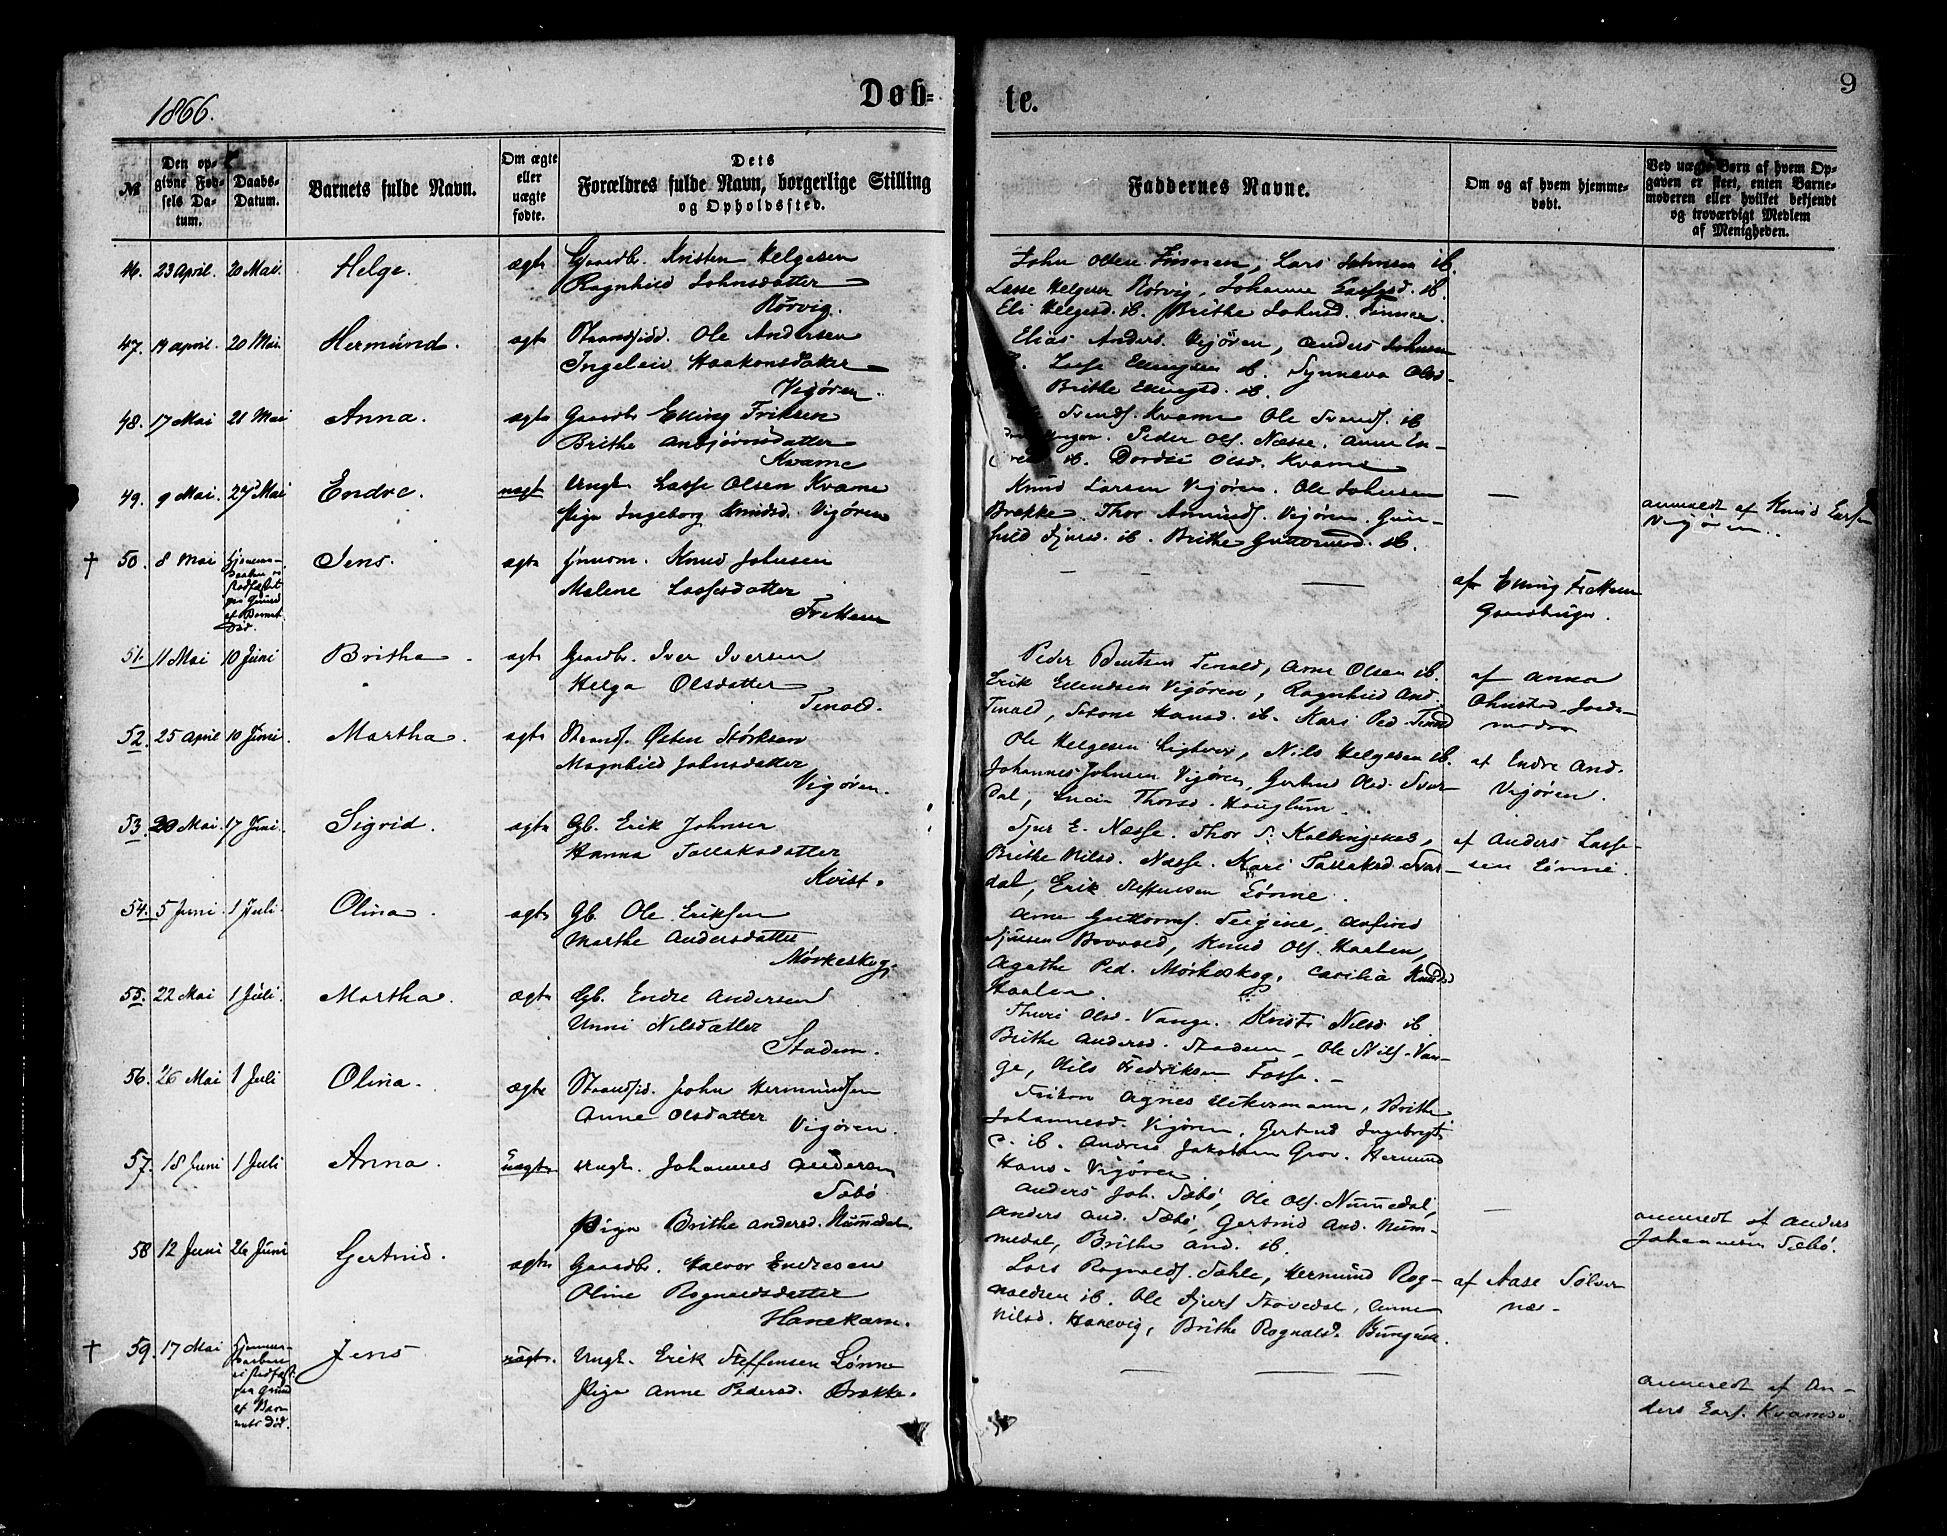 1866.
Døb-
te.
9
№
Den op-
givne Fød-
sels Da-
tum.
Daabs-
Datum.
Barnets fulde Navn.
Om ægte
eller
uægte
fødte.
Dets
Forældres fulde Navn, borgerlige Stilling
og Opholdssted.
Faddernes Navne.
Om og af hvem hjemme-
døbt.
Ved uægte Børn af hvem Op-
gaven er skeet, enten Barne-
moderen eller hvilket bekjendt
og troværdigt Medlem
af Menigheden.
46. 23 April. 20 Mai. Helge. ægte Gaardb. Kristen Helgesen
Ragnhild Johnsdatter
Rörvig.
John Olsen Finnen, Lars Johnsen ib.
Lasse Helgesen Rörvig, Johanne ib.
Eli Helgesd. ib. Brithe Johnsd. Finnen.
47. 19 april. 20 Mai. Hermund. ægte Strandsidd. Ole Andersen
Ingeleiv Haakonsdatter
Vigøren.
Elias Anders. Vigøren, Anders Johnsen
Lasse Ellingsen ib. Synneva Olsd.
Brithe Ellingsd. ib.
48. 17 Mai 21 Mai Anna. ægte Gaardb. Elling Eriksen
Brithe Anbjørnsdatter
Kvame
Svends. Kvame Ole Svends. ib
Peder Ols. Næsse. Anne En-
ib. Dordei Olsd. Kvame
49. 9 Mai. 27 Mai Endre. uægt Ungk. Lasse Olsen Kvame
Pige Ingeborg Knudsd. Vigøren
Knud Larsen Vigøren. Ole Johnsen
Brekke. Thor Amunds. Vigøren. Gun-
hild Sjursd. ib. Brithe Guttormsd. ib.
—
anmeldt af Knud Lars.
Vigøren.
† 50. 8 Mai Hjemme-
stadfæstet
paa Grund
af Barnets
Død.
Jens. ægte Knud Johnsen
Malene Lassesdatter
Fretten
— — —
af Elling Fretten
Gaardbruger.
51. 11 Mai 10 Juni Britha. ægte Gaardb. Iver Iversen
Helga Olsdatter
Tenold.
Peder Bentsen Tenold, Arne Olsen ib.
Erik Erlendsen Vigøren, Ragnhild And.
Tenold, Hansd. ib. Kari Ped. Tenold
af Anna
Ohnstad Jorde-
moder
52. 25 April 10 Juni. Martha. ægte Strands. Østen Størksen
Magnhild Johnsdatter
Vigøren.
Ole Helgesen Nils Helgesen ib.
Johannes Johnsen Vigøren, Gertrud Olsd. Svær-
dal, Thorsd. Houglum.
af Endre And.
Vigøren.
53. 20 Mai. 17 Juni. Sigrid. ægte Gb. Erik Johnsen
Hanna Tollaksdatter
Kvist.
Sjur E. Næsse. Thor S.
Brithe Nilsd. Næsse. Kari Tollaksd. Svær-
dal, Erik Steffensen Lønne.
af Anders Lasse-
sen Lønne.
54. 5 Juni. 1 Juli. Olina. ægte Gb. Ole Eriksen
Marthe Andersdatter
Mørkeskog.
Arne Guttorms. Teigene, Arfind
Sjursen Bovvold, Knud Ols. Haalen,
Agathe Ped. Mørkeskog, Cecilia Knudsd.
Haalen.
55. 22 Mai 1 Juli. Martha. ægte Gb. Endre Andersen
Unni Nilsdatter
Stadem.
Thuri Olsd. Vange. Kristi Nilsd ib.
Brithe Andersd. Stadem, Ole Nils. Van-
ge, Nils Fredriksen Fosse.
56. 26 Mai 1 Juli Olina. ægte Strandsid. John Hermundsen
Anne Olsdatter Vigøren.
Frøken Agnes Brithe
Johannesd. Vigøren, Gertrud Ingebrigts
D. ib. Andreas Jakobsen Grov. Hermund
Hans. Vigøren
57. 18 Juni 1 Juli Anna. uægte Ungk. Johannes Andersen
Sæbø
Pige Brithe Andersd. Nummedal.
Anders Joh. Sæbø, Ole Ols. Nummedal,
Anders And. Sæbø, Gertrud And. Num-
medal, Brithe And. ib.
—
anmeldt af Anders
Johannesen Sæbø.
58 12 Juni 26 Juni Gertrud. ægte Gaardbr. Halvor Endresen
Oline Rognaldsdatter
Hanekam.
Lars Rognalds. Sæhle, Hermund Rog-
naldsen ib. Ole Sjurs. Stavedal, Anne
Nilsd. Hanevig, Brithe Rognalds.
af Aase Solver
næs
† 59. 17 Mai Hjemme-
paa Grund
af Bar-
nets Død.
Jens uægte. Ungk. Erik Steffensen Lønne
Pige Anne Pedersd. Brække.
— — —
anmeldt af An-
ders Kvamsø